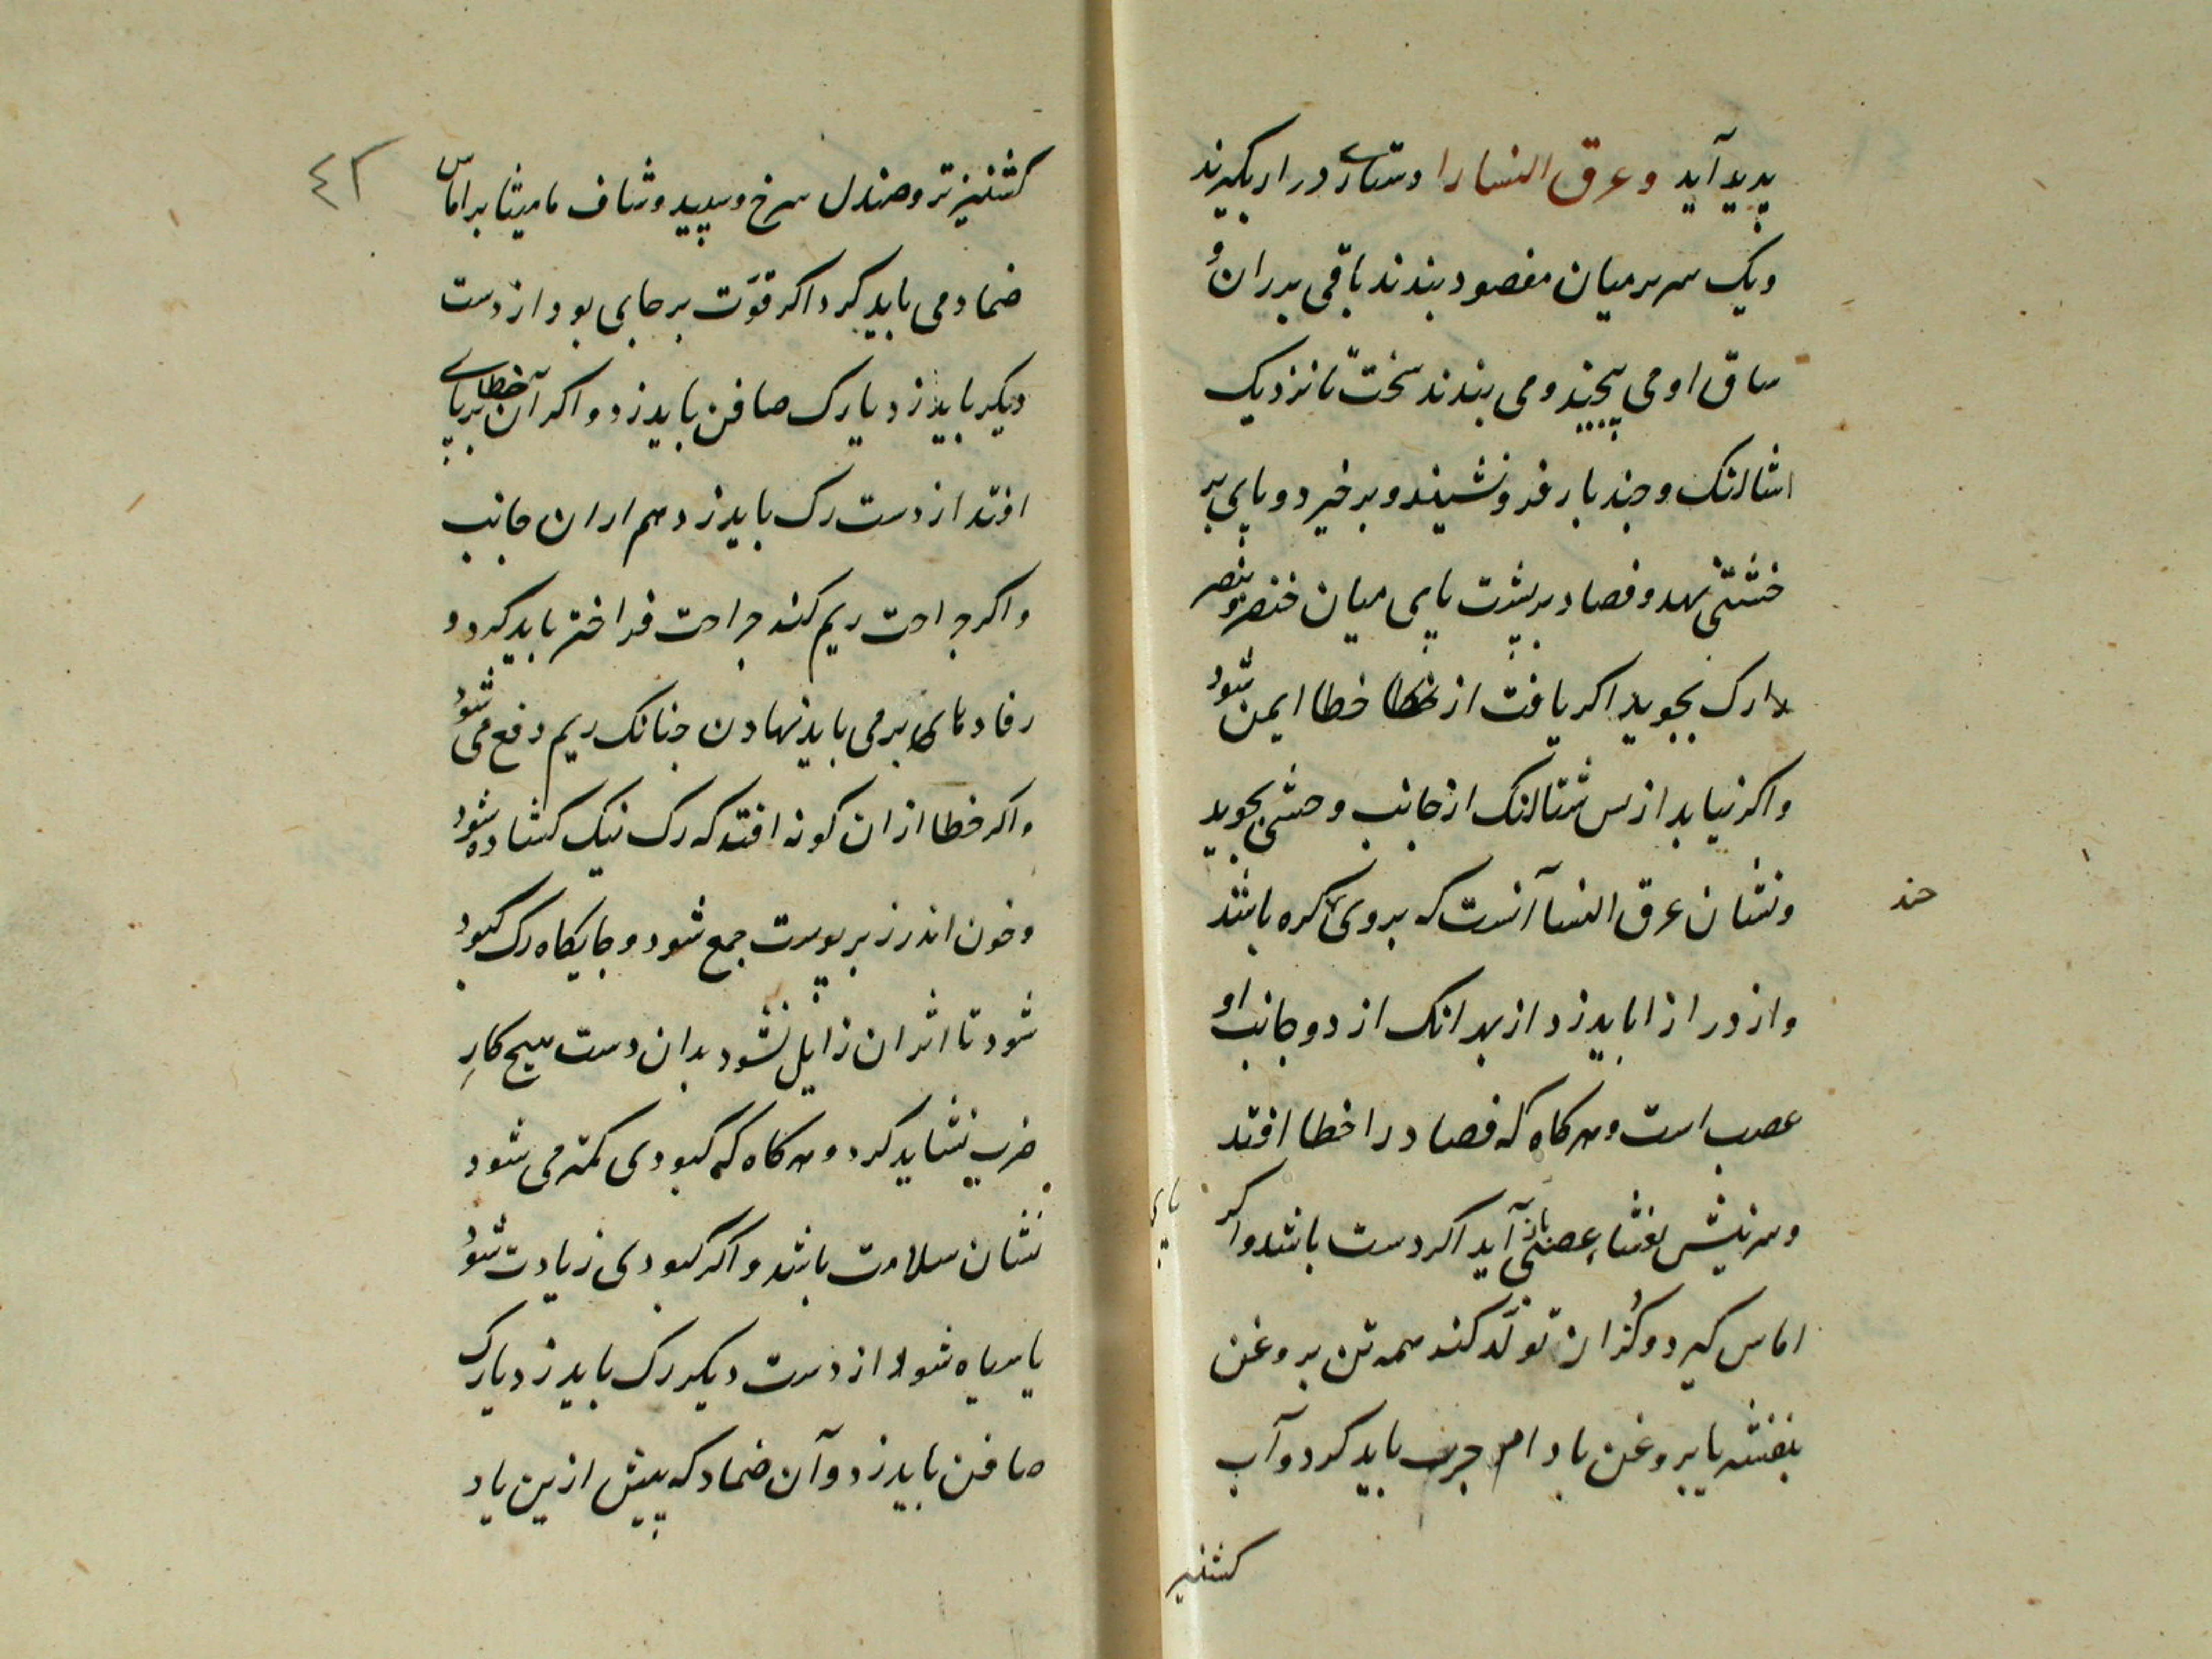 پدید آید و عرق النسا را دستاری دراز بگیرند
و یک سر بر میان مقصود بندند باقی بر ران و
ساق او می پیچند و می بندند سخت تا نزدیک
اشتالنک و چند بار فرو نشیند و برخیزد و پای بر
خشتی نهد و فصاد بر پشت پای میان خنصر و بنصر
رک بجوید اکر یافت از خطا ایمن شود
و اکر نیابد از پس شتالنک از جانب وحشی بجوید
و نشان عرق النسا آنست که بروی کره باشد
چند
و از درازا باید زد از بهر انک از دو جانب او
عصب است و هرکاه که فصاد را خطا افتد
و سر نیش بغشاء عصبانی آید اکر دست باشد و اکر
پای
اماس کیرد و کزان تولد کند همه تن بروغن
بنفشه یا بروغن بادام چرب باید کرد و آب
کشنیز
٤٢
کشنیز تر و صندل سرخ و سپید و شیاف مامیثا بر اماس
ضماد می باید کرد اکر قوّت بر جای بود از دست
دیکر باید زد یا رک صافن باید زد و اکر آن خطا بر پای
افتد از دست رک باید زد هم از ان جانب
و اکر جراحت ریم کند جراحت فراختر باید کرد و
رفادهای بر می باید نهادن چنانک ریم دفع می شود
و اکر خطا از ان کونه افتد که رک نیک کشاده شود
و خون اندر زیر پوست جمع شود و جایکاه رک کبود
شود تا اثر ان زایل نشود بدان دست هیچ کارِ
ضرب نشاید کرد و هرکاه که کبودی کمتر می شود
نشان سلامت باشد و اکر کبودی زیادت شود
یا سیاه شود از دست دیکر رک باید زد یا رک
صافن باید زد و آن ضماد که پیش ازین یاد